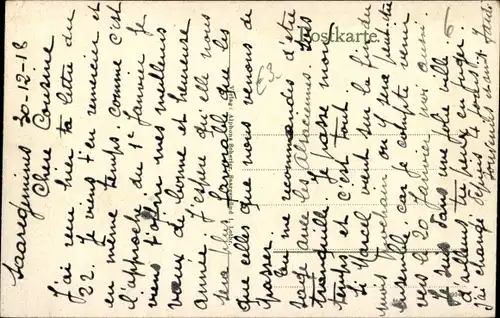 Postkarte
Saareguemines 30-12-18
Chère Cousine
J'ai reçu hier ta lettre du
22. Je viens t'en remercier et
en même temps. comme c'est
l'approche du 1e Janvier je
viens t'offrir mes meilleurs
vœux de bonne et heureuse
année j'espère qu'elle nous
sera plus favorable que les
que celles que nous venons de
passer.
Tu me recommandes d'être
sage avec les Alsaciennes. Sois
tranquille. Je passe mon
temps et c'est tout.
Si Marcel vient sur la fin du
mois prochain on y sera peut-être
ensemble car je compte venir
vers le 20 Janvier moi aussi.
Je suis dans une jolie ville
d'ailleurs tu peux en juger
j'ai changé depuis